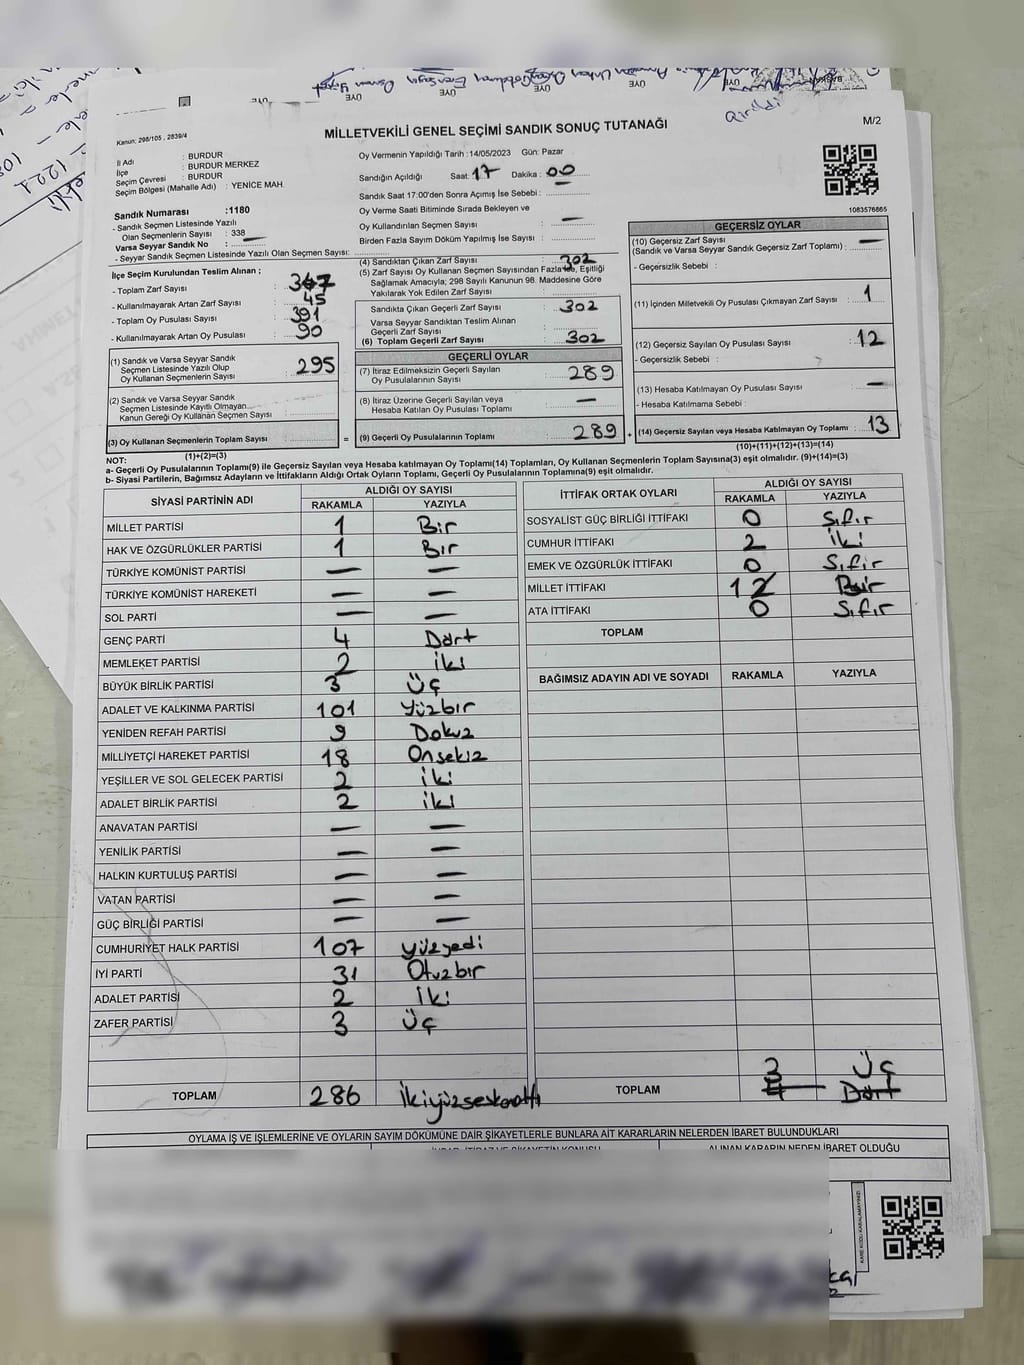 Kanun: 298/105 , 2839/4
MİLLETVEKİLİ GENEL SEÇİMİ SANDIK SONUÇ TUTANAĞI
M/2
İl Adı : BURDUR
İlçe : BURDUR MERKEZ
Seçim Çevresi : BURDUR
Seçim Bölgesi (Mahalle Adı) : YENİCE MAH.
Oy Vermenin Yapıldığı Tarih : 14/05/2023 Gün: Pazar
Sandığın Açıldığı Saat: 17 Dakika : 00
Sandık Saat 17:00'den Sonra Açımış İse Sebebi :
Oy Verme Saati Bitiminde Sırada Bekleyen ve
Oy Kullandırılan Seçmen Sayısı : —
Birden Fazla Sayım Döküm Yapılmış İse Sayısı :
1083576865
Sandık Numarası :1180
- Sandık Seçmen Listesinde Yazılı
Olan Seçmenlerin Sayısı : 338
Varsa Seyyar Sandık No : —
- Seyyar Sandık Seçmen Listesinde Yazılı Olan Seçmen Sayısı:
İlçe Seçim Kurulundan Teslim Alınan ;
- Toplam Zarf Sayısı : 347
- Kullanılmayarak Artan Zarf Sayısı : 45
- Toplam Oy Pusulası Sayısı : 391
- Kullanılmayarak Artan Oy Pusulası : 90
(1) Sandık ve Varsa Seyyar Sandık
Seçmen Listesinde Yazılı Olup
Oy Kullanan Seçmenlerin Sayısı : 295
(2) Sandık ve Varsa Seyyar Sandık
Seçmen Listesinde Kayıtlı Olmayan
Kanun Gereği Oy Kullanan Seçmen Sayısı :
(3) Oy Kullanan Seçmenlerin Toplam Sayısı :
(1)+(2)=(3)
(4) Sandıktan Çıkan Zarf Sayısı : 302
(5) Zarf Sayısı Oy Kullanan Seçmen Sayısından Fazla ise, Eşitliği
Sağlamak Amacıyla; 298 Sayılı Kanunun 98. Maddesine Göre
Yakılarak Yok Edilen Zarf Sayısı :
Sandıkta Çıkan Geçerli Zarf Sayısı : 302
Varsa Seyyar Sandıktan Teslim Alınan
Geçerli Zarf Sayısı :
(6) Toplam Geçerli Zarf Sayısı : 302
GEÇERLİ OYLAR
(7) İtiraz Edilmeksizin Geçerli Sayılan
Oy Pusulalarının Sayısı : 289
(8) İtiraz Üzerine Geçerli Sayılan veya
Hesaba Katılan Oy Pusulası Toplamı : —
= (9) Geçerli Oy Pusulalarının Toplamı : 289
GEÇERSİZ OYLAR
(10) Geçersiz Zarf Sayısı
(Sandık ve Varsa Seyyar Sandık Geçersiz Zarf Toplamı) : —
- Geçersizlik Sebebi :
(11) İçinden Milletvekili Oy Pusulası Çıkmayan Zarf Sayısı : 1
(12) Geçersiz Sayılan Oy Pusulası Sayısı : 12
- Geçersizlik Sebebi :
(13) Hesaba Katılmayan Oy Pusulası Sayısı : —
- Hesaba Katılmama Sebebi :
+ (14) Geçersiz Sayılan veya Hesaba Katılmayan Oy Toplamı : 13
(10)+(11)+(12)+(13)=(14)
NOT:
a- Geçerli Oy Pusulalarının Toplamı(9) ile Geçersiz Sayılan veya Hesaba katılmayan Oy Toplamı(14) Toplamları, Oy Kullanan Seçmenlerin Toplam Sayısına(3) eşit olmalıdır. (9)+(14)=(3)
b- Siyasi Partilerin, Bağımsız Adayların ve İttifakların Aldığı Ortak Oyların Toplamı, Geçerli Oy Pusulalarının Toplamına(9) eşit olmalıdır.
SİYASİ PARTİNİN ADI ALDIĞI OY SAYISI
RAKAMLA YAZIYLA
MİLLET PARTİSİ 1 Bir
HAK VE ÖZGÜRLÜKLER PARTİSİ 1 Bir
TÜRKİYE KOMÜNİST PARTİSİ — —
TÜRKİYE KOMÜNİST HAREKETİ — —
SOL PARTİ — —
GENÇ PARTİ 4 Dört
MEMLEKET PARTİSİ 2 iki
BÜYÜK BİRLİK PARTİSİ 3 Üç
ADALET VE KALKINMA PARTİSİ 101 Yüzbir
YENİDEN REFAH PARTİSİ 9 Dokuz
MİLLİYETÇİ HAREKET PARTİSİ 18 Onsekiz
YEŞİLLER VE SOL GELECEK PARTİSİ 2 iki
ADALET BİRLİK PARTİSİ 2 iki
ANAVATAN PARTİSİ — —
YENİLİK PARTİSİ — —
HALKIN KURTULUŞ PARTİSİ — —
VATAN PARTİSİ — —
GÜÇ BİRLİĞİ PARTİSİ — —
CUMHURİYET HALK PARTİSİ 107 yüzyedi
İYİ PARTİ 31 Otuzbir
ADALET PARTİSİ 2 iki
ZAFER PARTİSİ 3 Üç
TOPLAM 286 ikiyüzseksenaltı
İTTİFAK ORTAK OYLARI ALDIĞI OY SAYISI
RAKAMLA YAZIYLA
SOSYALİST GÜÇ BİRLİĞİ İTTİFAKI 0 Sıfır
CUMHUR İTTİFAKI 2 iki
EMEK VE ÖZGÜRLÜK İTTİFAKI 0 Sıfır
MİLLET İTTİFAKI 1 Bir
ATA İTTİFAKI 0 Sıfır
TOPLAM
BAĞIMSIZ ADAYIN ADI VE SOYADI RAKAMLA YAZIYLA
3 Üç
TOPLAM 4 Dört
OYLAMA İŞ VE İŞLEMLERİNE VE OYLARIN SAYIM DÖKÜMÜNE DAİR ŞİKAYETLERLE BUNLARA AİT KARARLARIN NELERDEN İBARET BULUNDUKLARI
ALINAN KARARIN NEDEN İBARET OLDUĞU